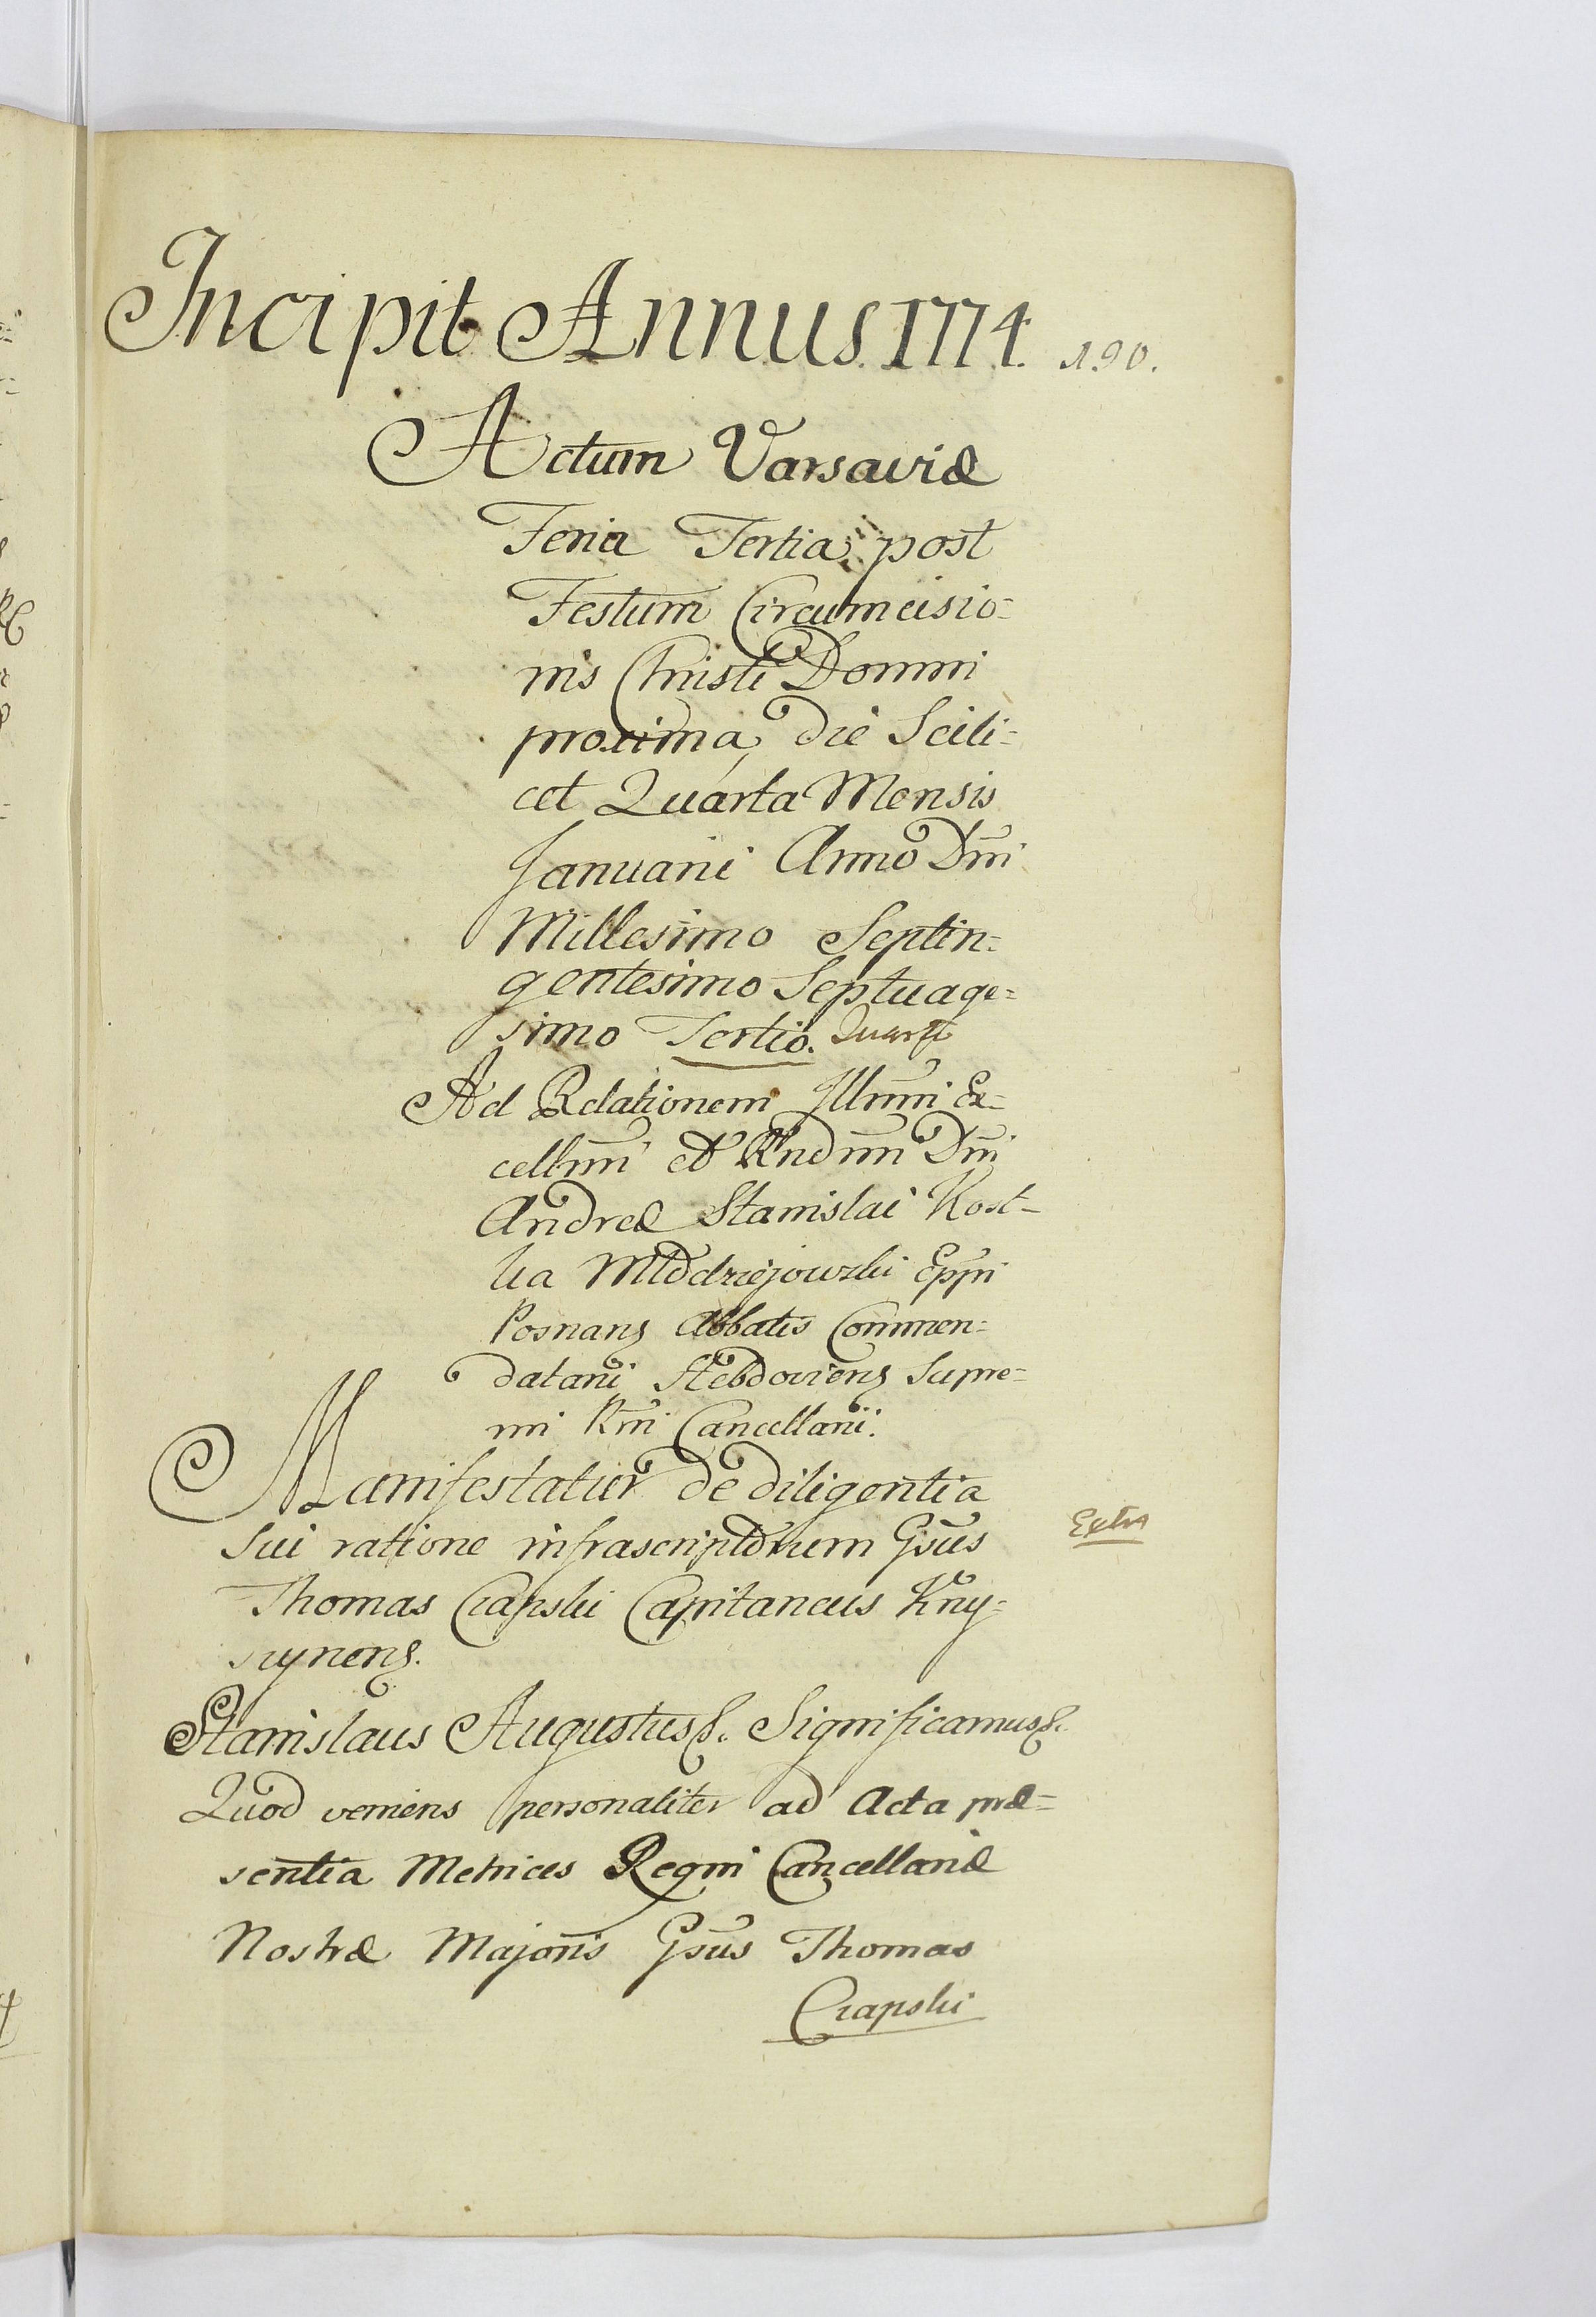 Incipit Annus. 1774. 190.
Actum Varsaviæ
Feria Tertia post
Festum Circumcisio=
nis Christi Domini
proxima, die Scili=
cet Quarta Mensis
Januarii Anno Dni
Millesimo Septin=
gentesimo Septuage=
simo Tertio. Quarto
Ad Relationem Illmi Ex=
cellmi et Rndmi Dni
Andreæ Stanislai Kost=
ka Młodziejowski Eppi
Posnans Abbatis Commen=
datarii Hebdoviens Supre=
mi Rni Cancellarii.
Manifestatur de diligentia
Sui ratione infrascriptorum Gsus
Extra
Thomas Czapski Capitaneus Kny=
szynens.
Stanislaus Augustus &. Significamus &.
Quod veniens personaliter ad Acta præ=
sentia Metrices Regni Cancellariæ
Nostræ Majoris Gsus Thomas
Czapski